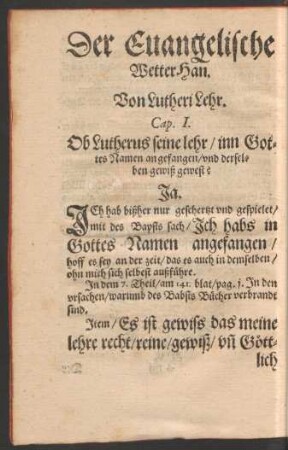 Der Euangelische
Wetter Han.
Von Lutheri Lehr.
Cap. I.
Ob Lutherus seine lehr / inn Got-
tes Namen angefangen / vnd dersel-
ben gewiß gewest?
Ja.
ICh hab bißher nur geschertzt vnd gespielet /
mit des Bapsts sach / Ich habs in
Gottes Namen angefangen /
hoff es sey an der zeit / das es auch in demselben /
ohn mich sich selbest außführe.
In dem 7. Theil / am 141. blat / pag. j. In den
vrsachen / warumb des Babsts Bücher verbrandt
sind.
Item / Es ist gewiss das meine
lehre recht / reine / gewiß / vñ Gött-
lich